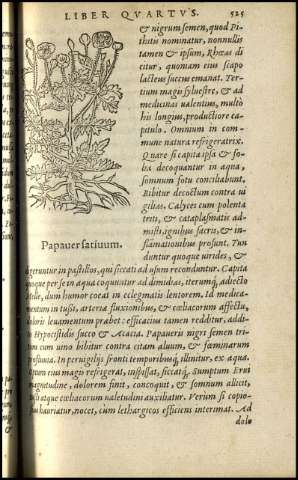 LIBER QVARTVS. 525
& nigrum semen, quod Pi-
thitis nominatur, nonnullis
tamen & ipsum, Rhœas di
citur, quoniam eius scapo
lacteus succus emanat. Ter-
tium magis syluestre, & ad
medicinas ualentius, multò
his longius, productiore ca-
pitulo. Omnium in com-
mune natura refrigeratrix.
Quare si capita ipsa & fo-
lia decoquantur in aqua,
somnum fotu conciliabunt.
Bibitur decoctum contra ui
gilias. Calyces cum polenta
triti, & cataplasmatis ad-
misti, ignibus sacris, & in-
flamationibus prosunt. Tun
duntur quoque uirides, &
Papauer satiuum.
digeruntur in pastillos, qui siccati ad usum reconduntur. Capita
quoque per se in aqua coquuntur ad dimidias, iterumq́; adiecto
melle, dum humor coeat in eclegmatis lentorem. Id medica-
mentum in tussi, arteriæ fluxionibus, & cœliacorum affectu,
doloris leuamentum præbet: efficacius tamen redditur, addi-
to Hypocistidis succo & Acacia. Papaueris nigri semen tri-
tum cum uino bibitur contra citam aluum, & fœminarum
profluuia. In peruigilijs fronti temporibusq́; illinitur, ex aqua.
magis refrigerat, inspissat, siccatq́;. Sumptum Erui
magnitudine, dolorem sinit, concoquit, & somnum allicit,
tussi atque cœliacorum ualetudini auxiliatur. Verum si copio
hauriatur, nocet, cum lethargicos efficiens interimat. Ad
dolo